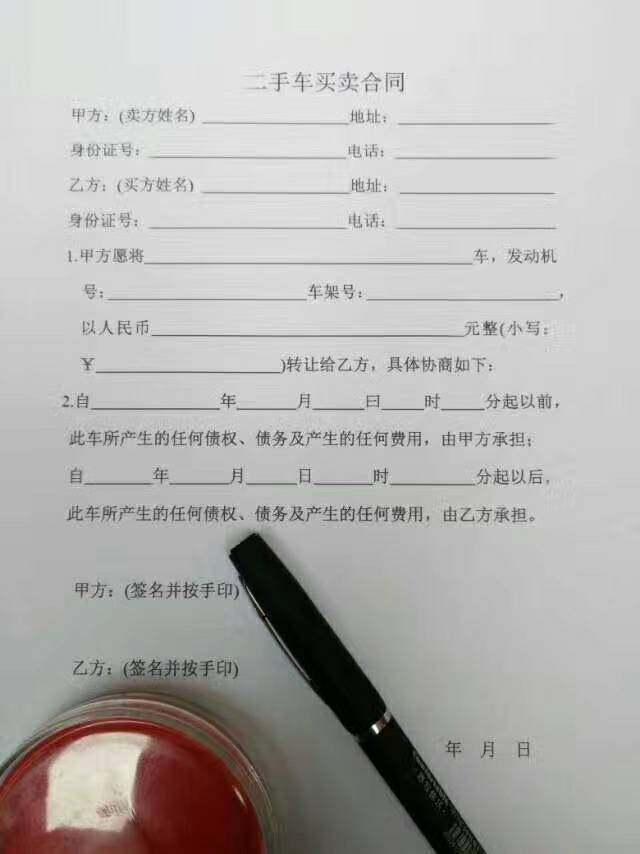 二手车买卖合同
甲方：(卖方姓名) ____________ 地址：____________
身份证号：____________ 电话：____________
乙方：(买方姓名) ____________ 地址：____________
身份证号：____________ 电话：____________
1.甲方愿将____________车，发动机
号：____________车架号：____________，
以人民币____________元整(小写：
￥____________)转让给乙方，具体协商如下：
2.自______年____月____日____时____分起以前，
此车所产生的任何债权、债务及产生的任何费用，由甲方承担；
自______年____月____日____时______分起以后，
此车所产生的任何债权、债务及产生的任何费用，由乙方承担。
甲方：(签名并按手印)
乙方：(签名并按手印)
年 月 日